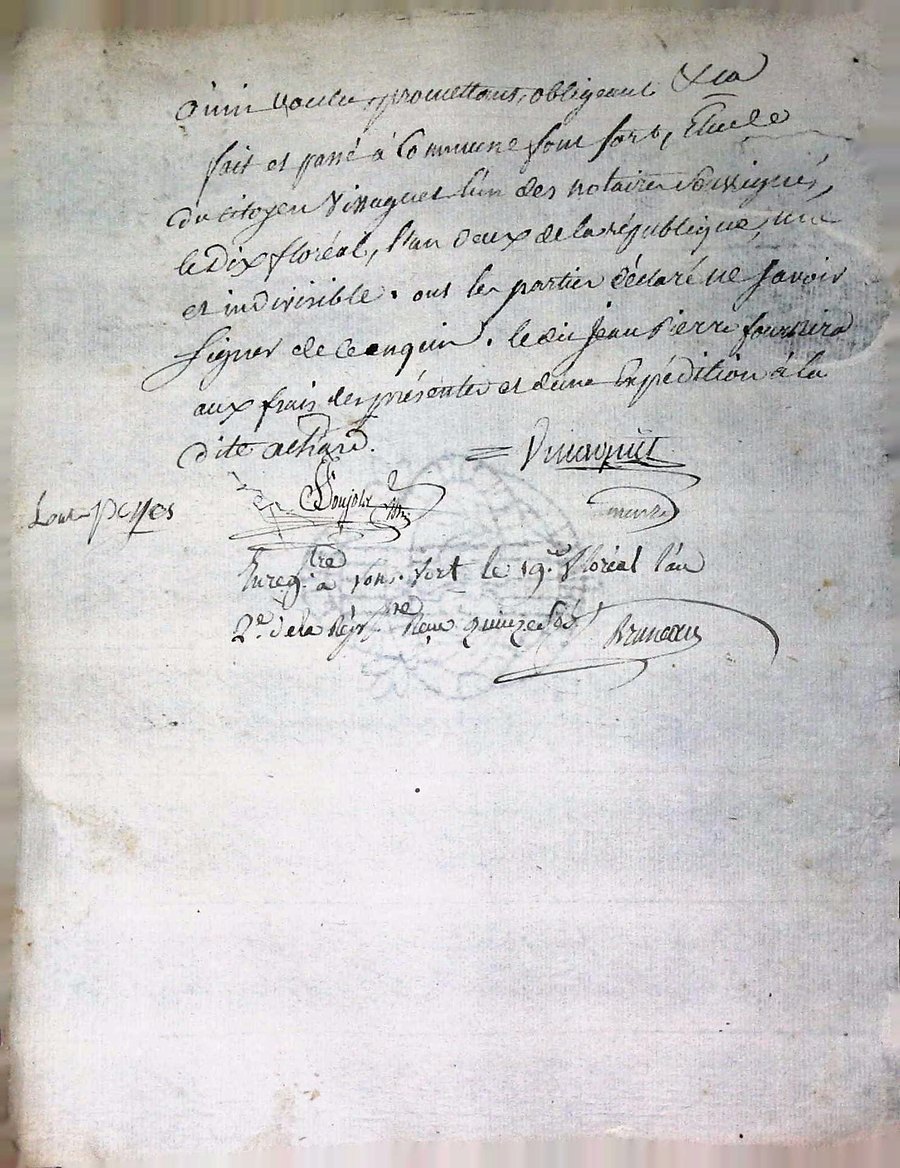 Ainsi voulu, promettant, obligeant &ca
fait et passé à Commune sous fort, Etude
du citoyen Vissaguet l'un des notaires soussignés,
le Dix floréal, l'an deux de la république, une
et indivisible. ont les parties déclaré ne savoir
signer de ce enquis. ledit Jean Pierre fournira
aux frais des présentes et d'une Expédition à la
dite achard.
Vissaguet
Enreg.tre à le 19.e floréal l'an
2.e de la Rép. Reçu quinze sols